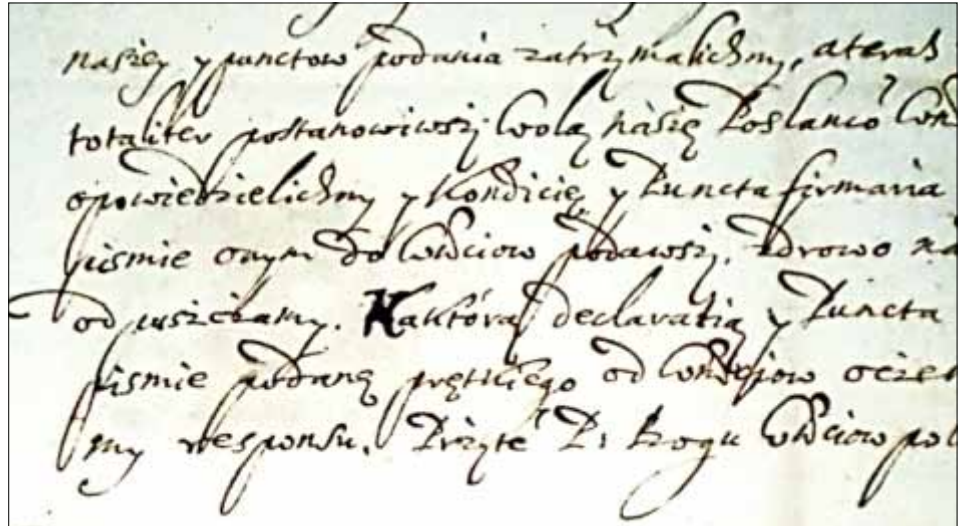 naszey y punctow podania zatrzymalichmy, a teraz
totaliter postanowiwszy Wolą naszę Posłanco
opowiedzielichmy y Kondicię y Puncta firmaria
pismie onym do Wściow podawszy, zdrowo
odpuszczamy. Naktórą declaratią y Puncta
pismie podanę prętkiego od Wściow
my responsu. Przyte P. Bogu Wściow